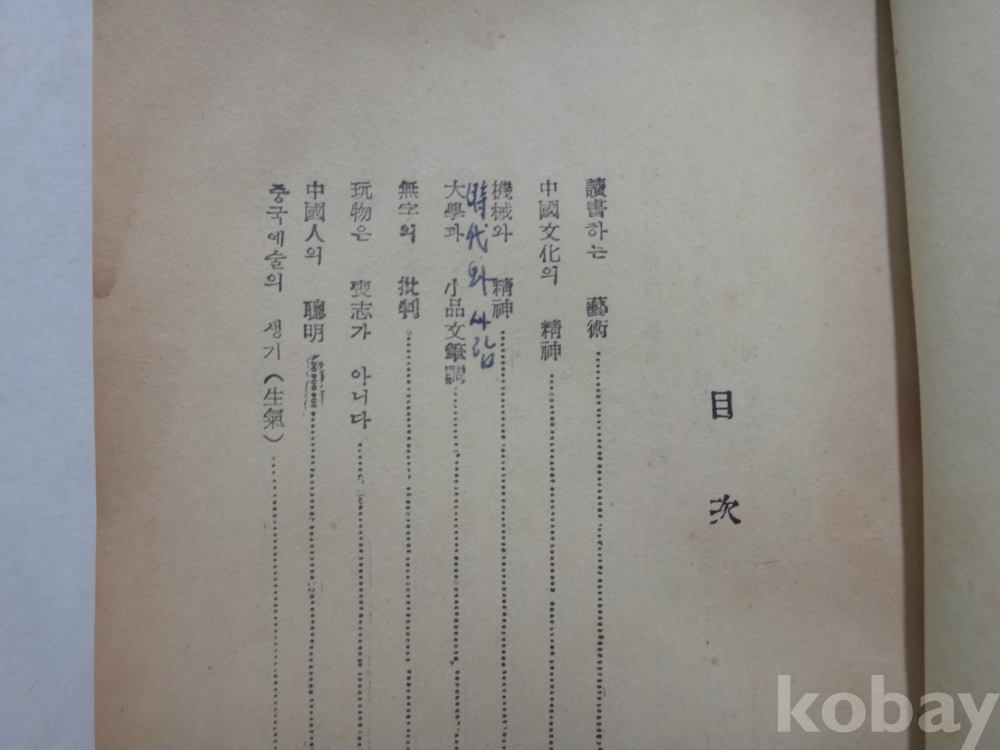 目次
讀書하는 藝術
中國文化의 精神
機械와 精神
時代와 사람
大學과 小品文筆調
無字의 批判
玩物은 喪志가 아니다
中國人의 聰明
중국예술의 생기(生氣)
kobay